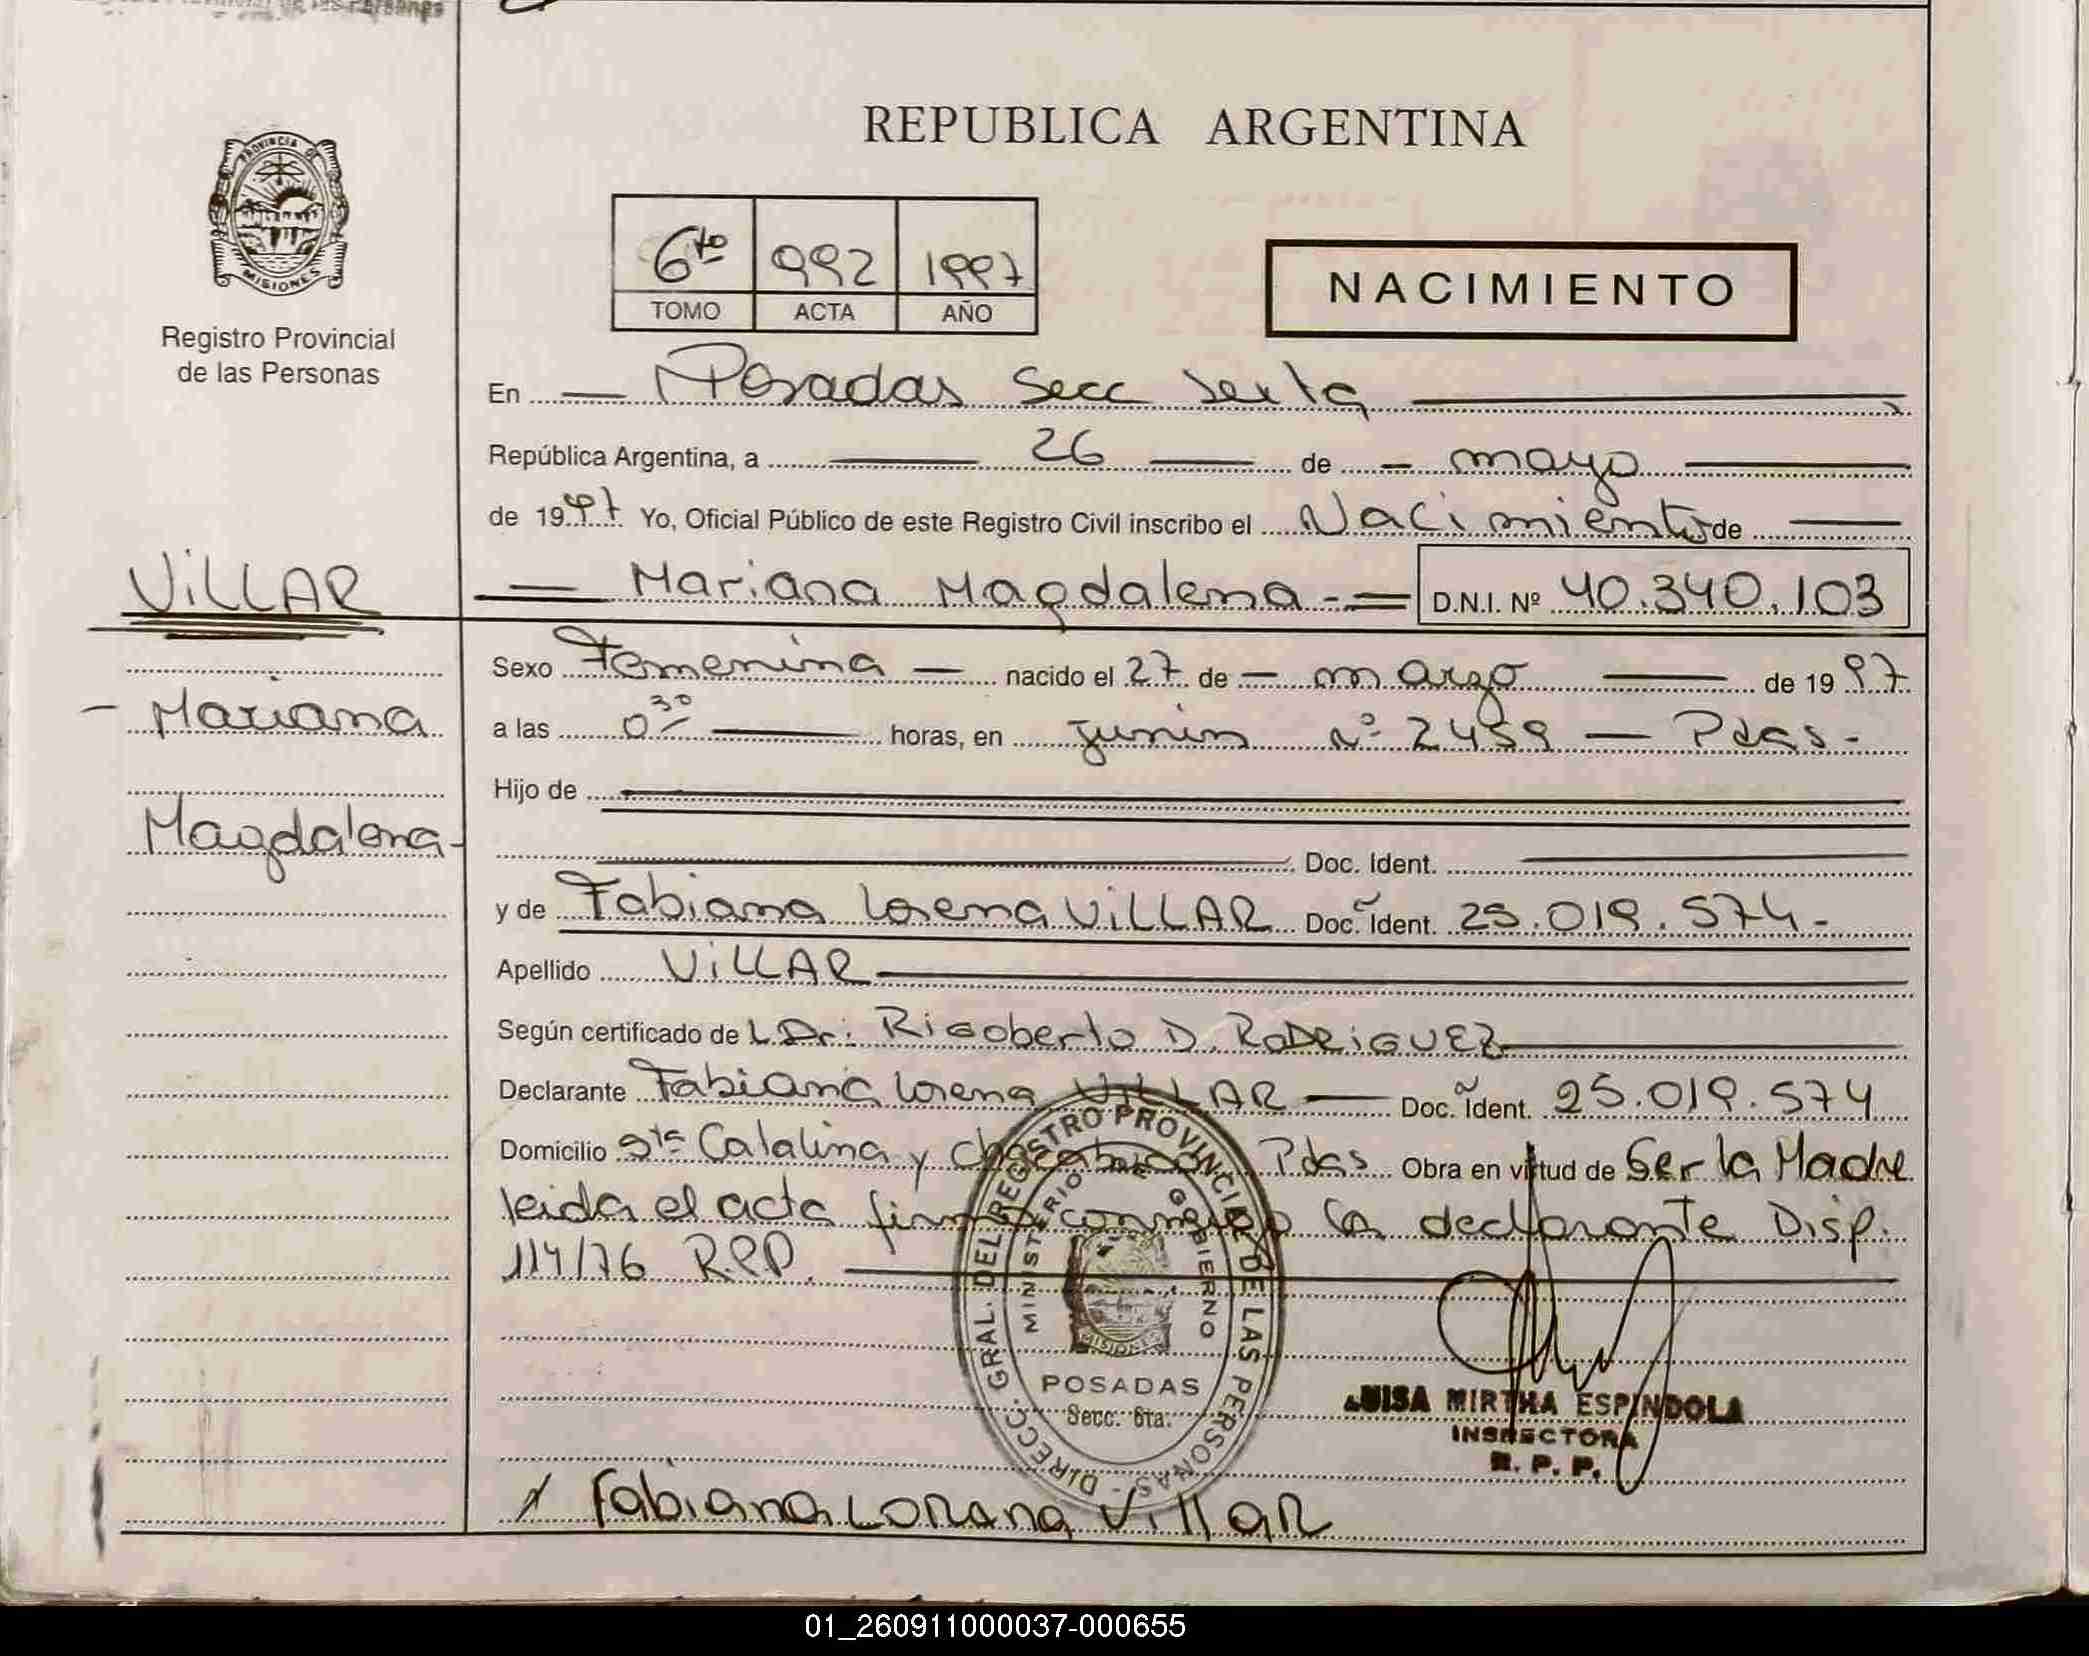 REPUBLICA ARGENTINA
PROVINCIA DE
MISIONES
Registro Provincial
de las Personas
6to 992 1997
TOMO ACTA AÑO
NACIMIENTO
En Posadas Secc Sexta
República Argentina, a 26 de mayo
de 1997 Yo, Oficial Público de este Registro Civil inscribo el Nacimiento de
VILLAR
Mariana Magdalena D.N.I. Nº 40.340.103
Sexo Femenina nacido el 27 de marzo de 1997
Mariana
a las 0 30 horas, en Junin nº 2459 - Pdas-
Hijo de
Magdalena-
Doc. Ident.
y de Fabiana Lorena VILLAR Doc. Ident. 25.019.574-
Apellido VILLAR
Según certificado de L Dr: Rigoberto D. RODRIGUEZ
Declarante Fabiana Lorena VILLAR Doc. Ident. 25.019.574
Domicilio Sta Catalina y Pdas Obra en virtud de Ser la Madre
leida el acta firma conmigo la declarante Disp.
114/76 R.P.P.
DIRECC. GRAL. DEL REGISTRO PROVINCIAL DE LAS PERSONAS -
MINISTERIO DE GOBIERNO
MISIONES
POSADAS
Secc. 6ta.
LUISA MIRTHA ESPINDOLA
INSPECTORA
R. P. P.
Fabiana LORANA VillaR
01_260911000037-000655